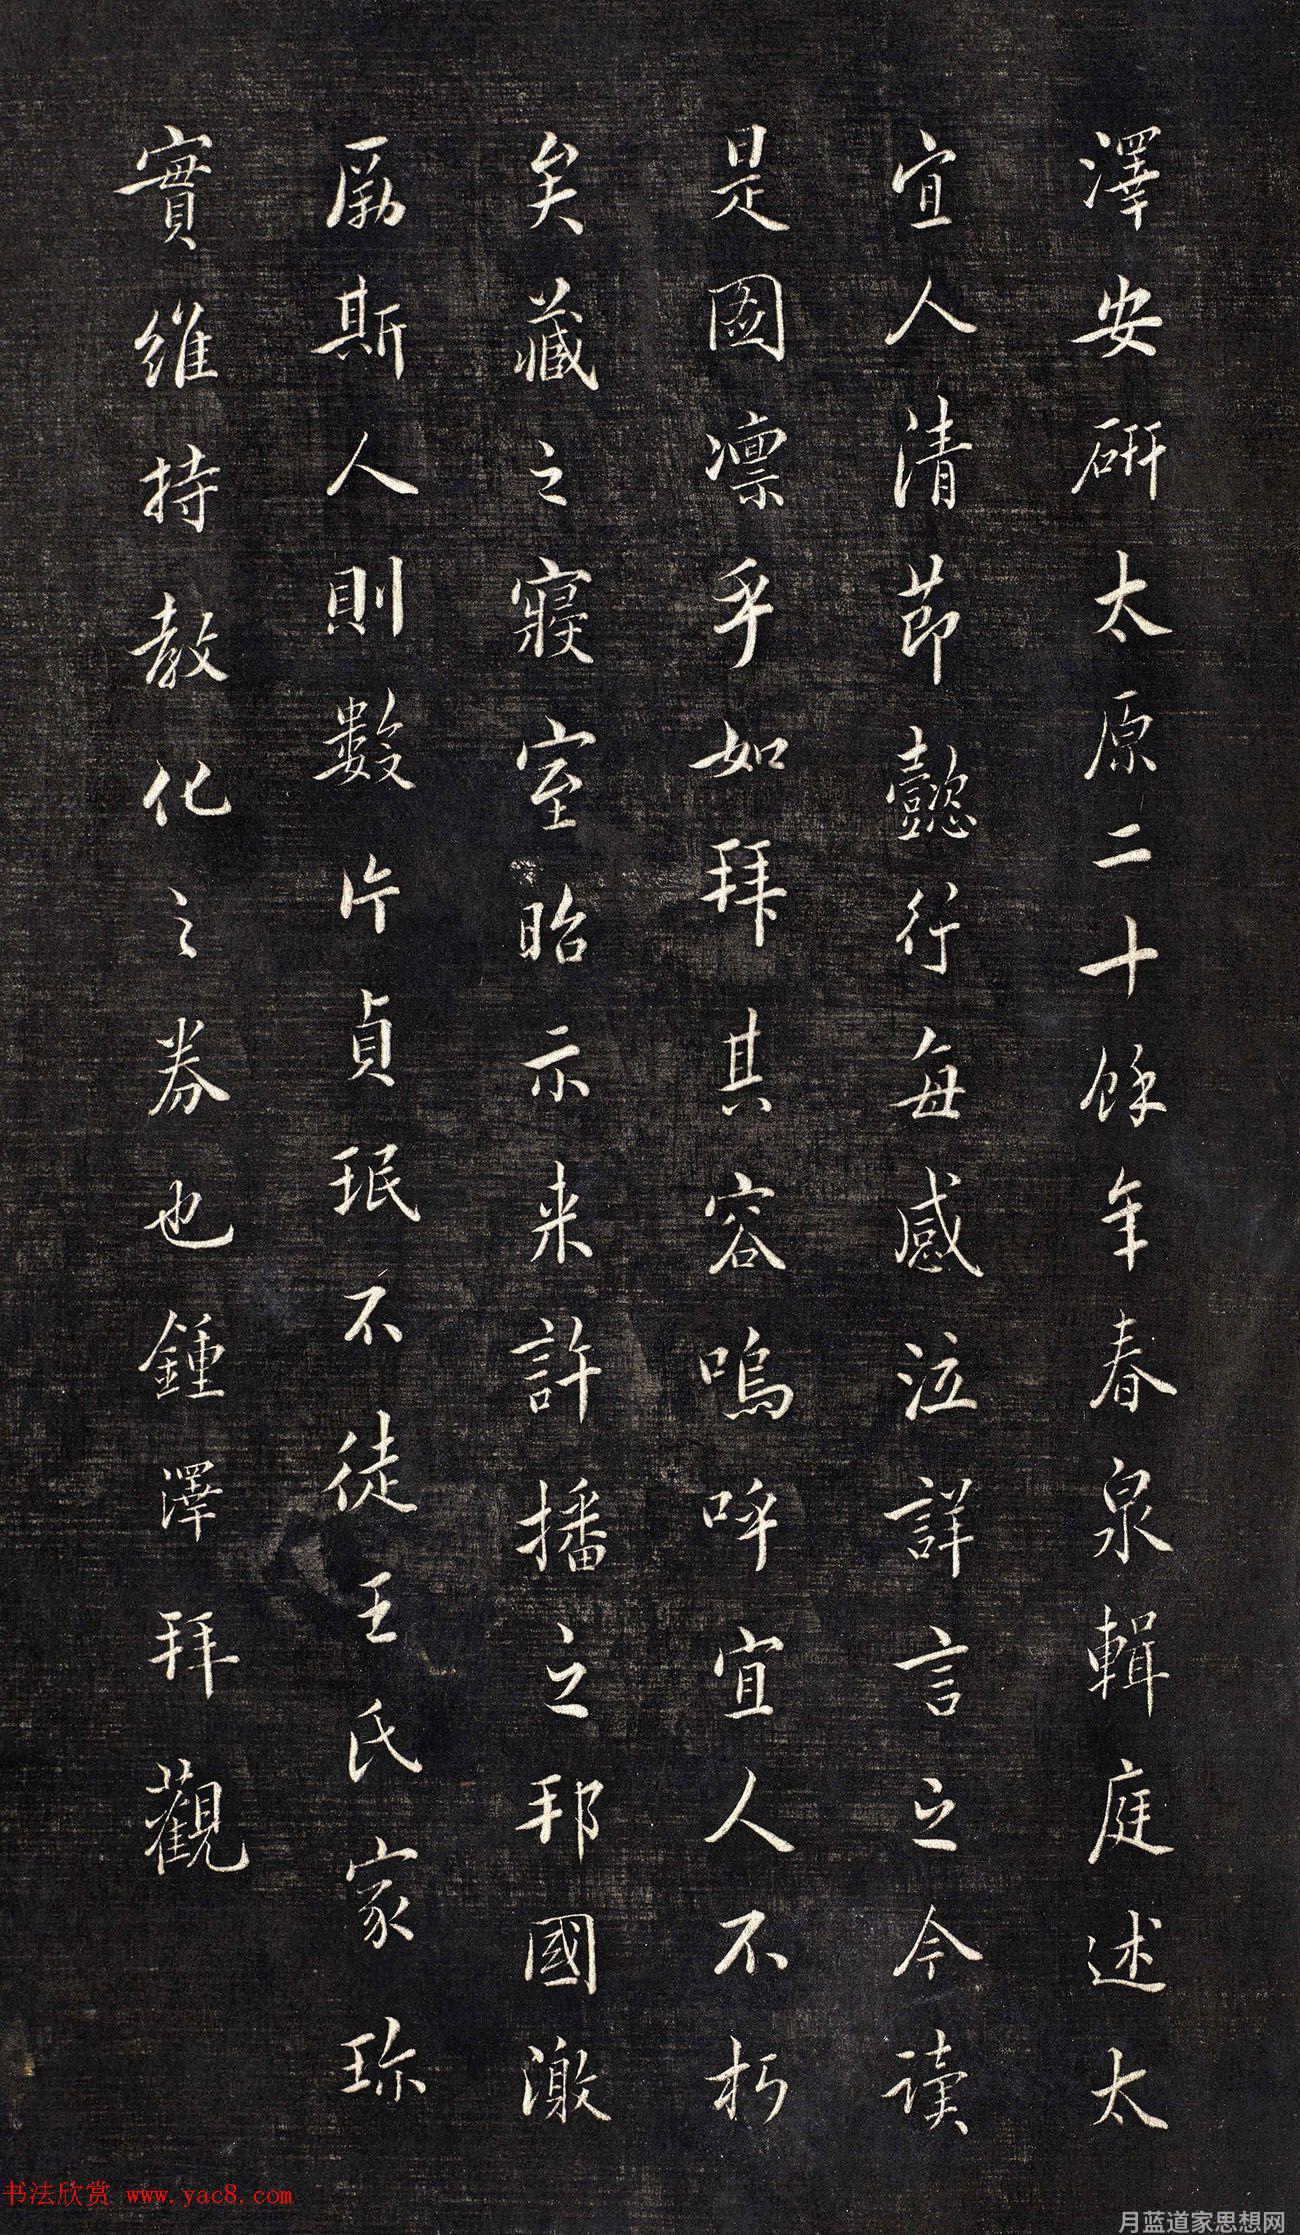 澤安硏太原二十餘年春泉輯庭述太
宜人清節懿行每感泣詳言之今讀
是圖凛乎如拜其容嗚呼宜人不朽
矣藏之寢室昭示来許播之邦國激
勵斯人則數片貞珉不徒王氏家珎
實維持教化之券也鍾澤拜觀
书法欣赏 www.yac8.com
月蓝道家思想网